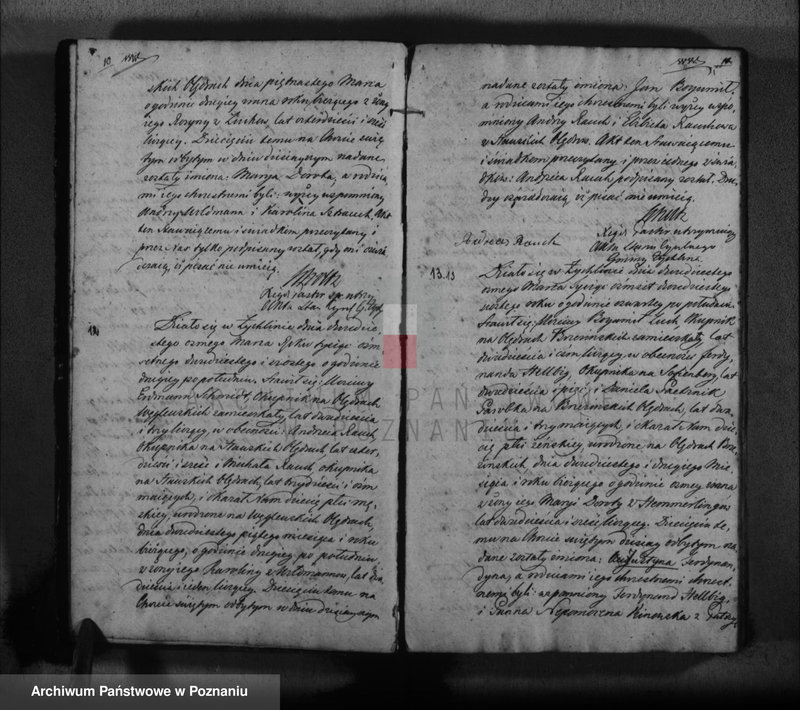 10
skich Olędrach dnia piętnastego Marca
o godzinie drugiey zrana roku bieżącego z żony
iego Rozyny z Linków, lat czterdzieści i sześć
liczącey. Dziecięciu temu na Chrzcie świę
tym odbytym w dniu dzisieyszym nadane
zostały imiona: Maryia Dorota, a rodzica
mi iego chrzestnemi byli: wyżey wspomniony
i Karolina Sztrauch. Akt
ten Stawaiącemu i świadkom przeczytany i
przez Nas tylko podpisany został, gdyż oni oświad
czaią, iż pisać nie umieią.
Akta Stan Cywil
Działo się w Tychlinie dnia dwudzie
stego osmego Marca roku tysiąc ośm
setnego dwudziestego i szóstego o godzinie
drugiey po południu. Stawił się: Morawy
Erdmann Schmidt, Okupnik na Olędrach
Węglewskich zamieszkały, lat dwadzieścia
i trzy liczący w obecności: Andrzeia Rauch,
Okupnika na Stawskich Olędrach, lat czter,
dzieści i sześć i Michała Rauch, okupnika
na Stawskich Olędrach, lat trzydzieści i ośm
maiących, i okazał Nam dziecię płci mę,
skiey, urodzone na Węglewskich Olędrach,
dnia dwudziestego piątego miesiąca i roku
bieżącego, o godzinie drugiey po południu
z żony iego Karoliny z lat dwa
dzieścia i ieden liczącey. Dziecięciu temu na
Chrzcie świętym odbytym w dniu dzisieyszym
nadane zostały imiona: Jan Bogumił,
a rodzicami iego chrzestnemi byli wyżey wspo,
mniony Andrzey Rauch i Elżbieta Rauchowa
z Stawskich Olędrów. Akt ten Stawaiącemu
i świadkom przeczytany i przez iednego z świa
dków: Andrzeia Rauch, podpisany został. Dru
dzy oświadczaią, iż pisać nie umieią.
Andreas Rauch
Akta Stanu Cywilnego
Gminy Tychlina
13.
Działo się w Tychlinie dnia dwudziestego
osmego Marca tysiąc ośmset dwudziestego
szóstego roku o godzinie czwartey po południu.
Stawił się: Morawy Bogumił Luch, Okupnik
na Olędrach Brzezinskich zamieszkały, lat
dwadzieścia i ośm liczący w obecności Ferdy,
nanda Hellbig, Okupnika na lat
dwadzieścia i pięć, i Daniela
Parobka na Brzezinskich Olędrach, lat dwa,
dzieścia i trzy maiących, i okazał Nam dzie,
cię płci żeńskiey urodzone na Olędrach Brze,
zińskich, dnia dwudziestego i drugiego Mie,
siąca i roku bieżącego o godzinie osmey zrana
z żony iego Maryi Doroty z Hemmerlingów
lat dwadzieścia i sześć liczącey. Dziecięciu te,
mu na Chrzcie świętym dzisiay odbytym na
dane zostały imiona: Augustyna Ferdynan,
dyna, a rodzicami iego chrzestnemi chrzest,
nemi byli: wspomniony Ferdynand Hellbig,
i Panna Nepomocena Rinowska z
ARCHIWUM PAŃSTWOWE
W POZNANIU
Archiwum Państwowe w Poznaniu